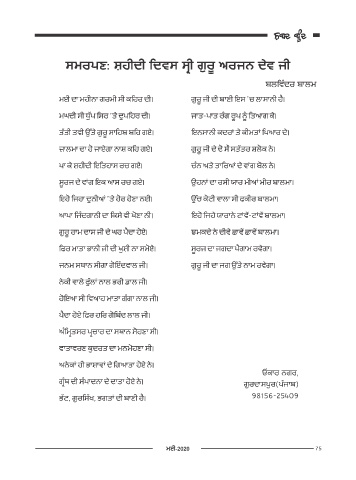 ਸਮਰਪਣ: ਸ਼ਹੀਦੀ ਦਿਵਸ ਸ੍ਰੀ ਗੁਰੂ ਅਰਜਨ ਦੇਵ ਜੀ
ਬਲਵਿੰਦਰ ਬਾਲਮ
ਮਈ ਦਾ ਮਹੀਨਾ ਗਰਮੀ ਸੀ ਕਹਿਰ ਦੀ।
ਮਘਦੀ ਸੀ ਧੁੱਪ ਸਿਰ 'ਤੇ ਦੁਪਹਿਰ ਦੀ।
ਤੱਤੀ ਤਵੀ ਉੱਤੇ ਗੁਰੂ ਸਾਹਿਬ ਬਹਿ ਗਏ।
ਜ਼ਾਲਮਾਂ ਦਾ ਹੋ ਜਾਏਗਾ ਨਾਸ਼ ਕਹਿ ਗਏ।
ਪਾ ਕੇ ਸ਼ਹੀਦੀ ਇਤਿਹਾਸ ਰਚ ਗਏ।
ਸੂਰਜ ਦੇ ਵਾਂਗ ਇਕ ਆਸ ਰਚ ਗਏ।
ਇਹੋ ਜਿਹਾ ਦੁਨੀਆਂ 'ਤੇ ਹੋਰ ਹੋਣਾ ਨਈਂ।
ਆਪਾ ਜ਼ਿੰਦਗਾਨੀ ਦਾ ਕਿਸੇ ਵੀ ਖੋਣਾ ਨੀ।
ਗੁਰੂ ਰਾਮ ਦਾਸ ਜੀ ਦੇ ਘਰ ਪੈਦਾ ਹੋਏ।
ਫਿਰ ਮਾਤਾ ਭਾਨੀ ਜੀ ਦੀ ਖੁਸ਼ੀ ਨਾ ਸਮੋਏ।
ਜਨਮ ਸਥਾਨ ਸੀਗਾ ਗੋਇੰਦਵਾਲ ਜੀ।
ਨੇਕੀ ਵਾਲੇ ਫੁੱਲਾਂ ਨਾਲ ਭਰੀ ਡਾਲ ਜੀ।
ਹੋਇਆ ਸੀ ਵਿਆਹ ਮਾਤਾ ਗੰਗਾ ਨਾਲ ਜੀ।
ਪੈਦਾ ਹੋਏ ਫਿਰ ਹਰਿ ਗੋਬਿੰਦ ਲਾਲ ਜੀ।
ਅੰਮ੍ਰਿਤਸਰ ਪ੍ਰਚਾਰ ਦਾ ਸਥਾਨ ਸੋਹਣਾ ਸੀ।
ਵਾਤਾਵਰਣ ਕੁਦਰਤ ਦਾ ਮਨਮੋਹਣਾ ਸੀ।
ਅਨੇਕਾਂ ਹੀ ਭਾਸ਼ਾਵਾਂ ਦੇ ਗਿਆਤਾ ਹੋਏ ਨੇ।
ਗ੍ਰੰਥ ਦੀ ਸੰਪਾਦਨਾ ਦੇ ਦਾਤਾ ਹੋਏ ਨੇ।
ਭੱਟ, ਗੁਰਸਿੱਖ, ਭਗਤਾਂ ਦੀ ਬਾਣੀ ਹੈ।
ਗੁਰੂ ਜੀ ਦੀ ਬਾਣੀ ਇਸ 'ਚ ਲਾਸਾਨੀ ਹੈ।
ਜਾਤ-ਪਾਤ ਰੰਗ ਰੂਪ ਨੂੰ ਤਿਆਗ ਕੇ।
ਇਨਸਾਨੀ ਕਦਰਾਂ ਤੇ ਕੀਮਤਾਂ ਪਿਆਰ ਦੇ।
ਗੁਰੂ ਜੀ ਦੇ ਦੋ ਸੌ ਸਤੱਤਰ ਸ਼ਲੋਕ ਨੇ।
ਚੰਨ ਅਤੇ ਤਾਰਿਆਂ ਦੇ ਵਾਂਗ ਬੋਲ ਨੇ।
ਉਹਨਾਂ ਦਾ ਰਸੀ ਯਾਰ ਮੀਆਂ ਮੀਰ ਬਾਲਮਾ।
ਉੱਚ ਕੋਟੀ ਵਾਲਾ ਸੀ ਫਕੀਰ ਬਾਲਮਾ।
ਇਹੋ ਜਿਹੇ ਯਾਰਾਨੇ ਟਾਵੇਂ-ਟਾਵੇਂ ਬਾਲਮਾ।
ਚਮਕਦੇ ਨੇ ਦੀਵੇ ਛਾਵੇਂ ਛਾਵੇਂ ਬਾਲਮਾ।
ਸੂਰਜ ਦਾ ਜਗਦਾ ਪੈਗਾਮ ਰਵੇਗਾ।
ਗੁਰੂ ਜੀ ਦਾ ਜਗ ਉੱਤੇ ਨਾਮ ਰਵੇਗਾ।
ਓਂਕਾਰ ਨਗਰ,
ਗੁਰਦਾਸਪੁਰ(ਪੰਜਾਬ)
98156-25409
ਮਈ-2020
75